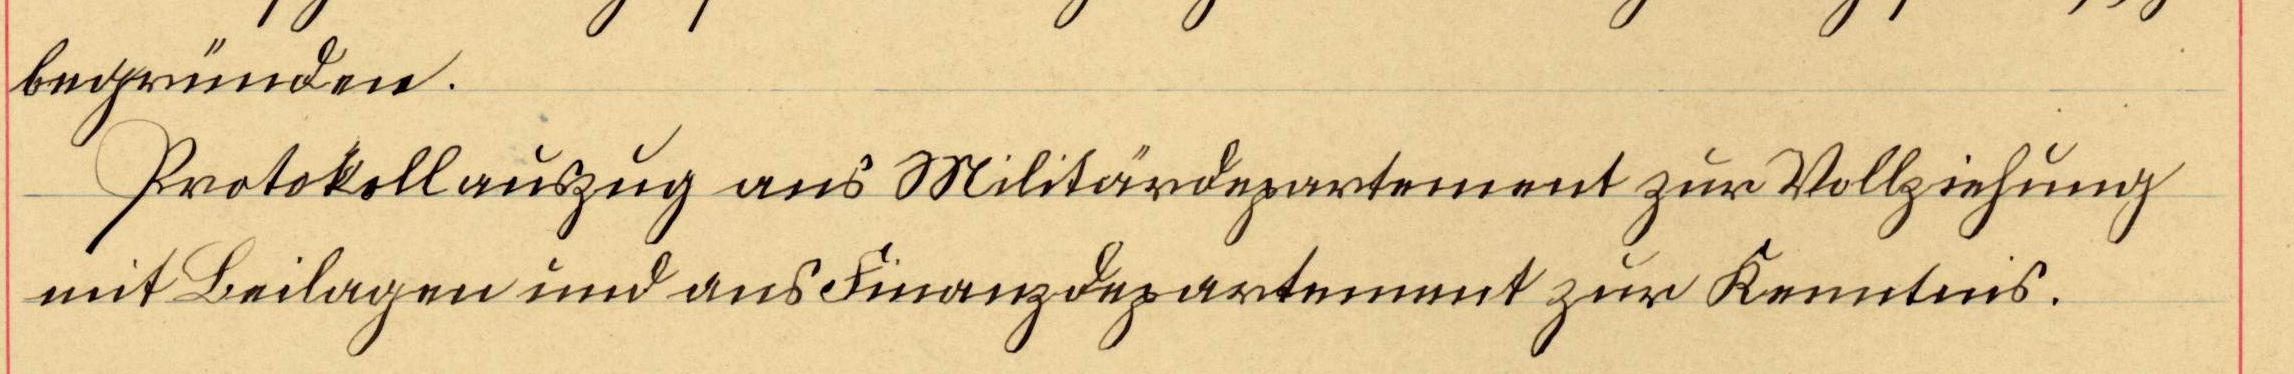 begründen.
Protokollauszug ans Militärdepartement zur Vollziehung
mit Beilagen und ans Finanzdepartement zur Kenntnis.